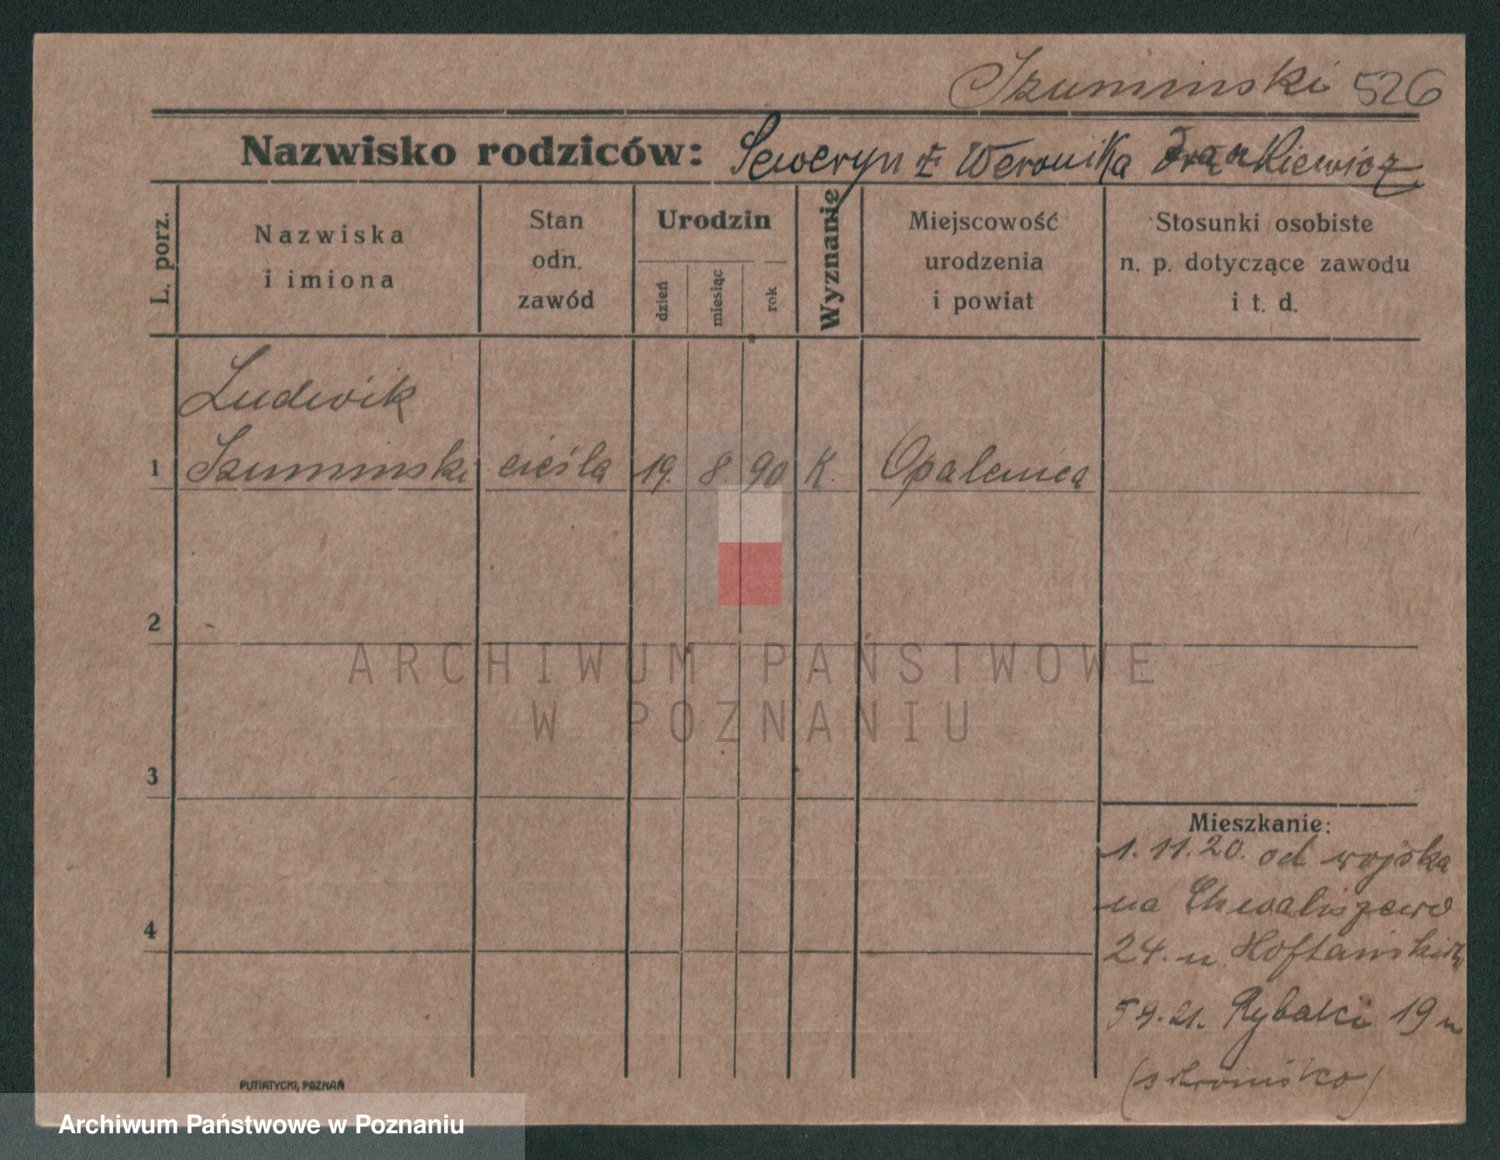 Szuminski 526
Nazwisko rodziców: Seweryn i Weronika Frąckiewicz
L. porz.
Nazwiska
i imiona
Stan
odn.
zawód
Urodzin
dzień
miesiąc
rok
Wyznanie
Miejscowość
urodzenia
i powiat
Stosunki osobiste
n. p. dotyczące zawodu
i t. d.
Ludwik
1 Szuminski cieśla 19. 8. 90 K. Opalenica
2
ARCHIWUM PAŃSTWOWE
W POZNANIU
3
4
Mieszkanie:
1.11.20. od wojska
na Chwaliszewo
24. u
5 9.21. Rybaki 19 u
(schronisko)
PUTIATYCKI, POZNAŃ
Archiwum Państwowe w Poznaniu